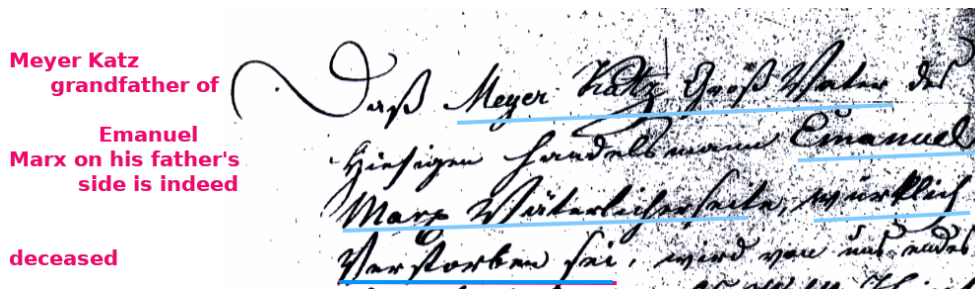 Meyer Katz
grandfather of
Emanuel
Marx on his father's
side is indeed
deceased
Daß Meyer Katz Groß Vater des
Hiesigen Handelsmann Emanuel
Marx Väterlicherseite, würklich
Verstorben sei, wird von uns endes